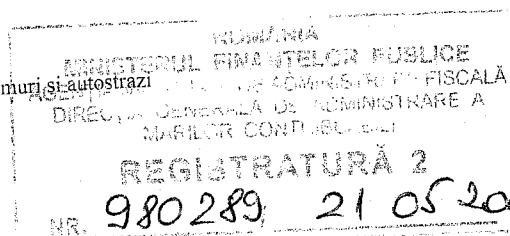 ROMÂNIA
MINISTERUL FINANȚELOR PUBLICE
muri și autostrazi
DE ADMINISTRARE FISCALĂ
DIRECȚIA GENERALĂ DE ADMINISTRARE A
MARILOR CONTRIBUABILI
REGISTRATURĂ 2
NR. 980289, 21 05 20